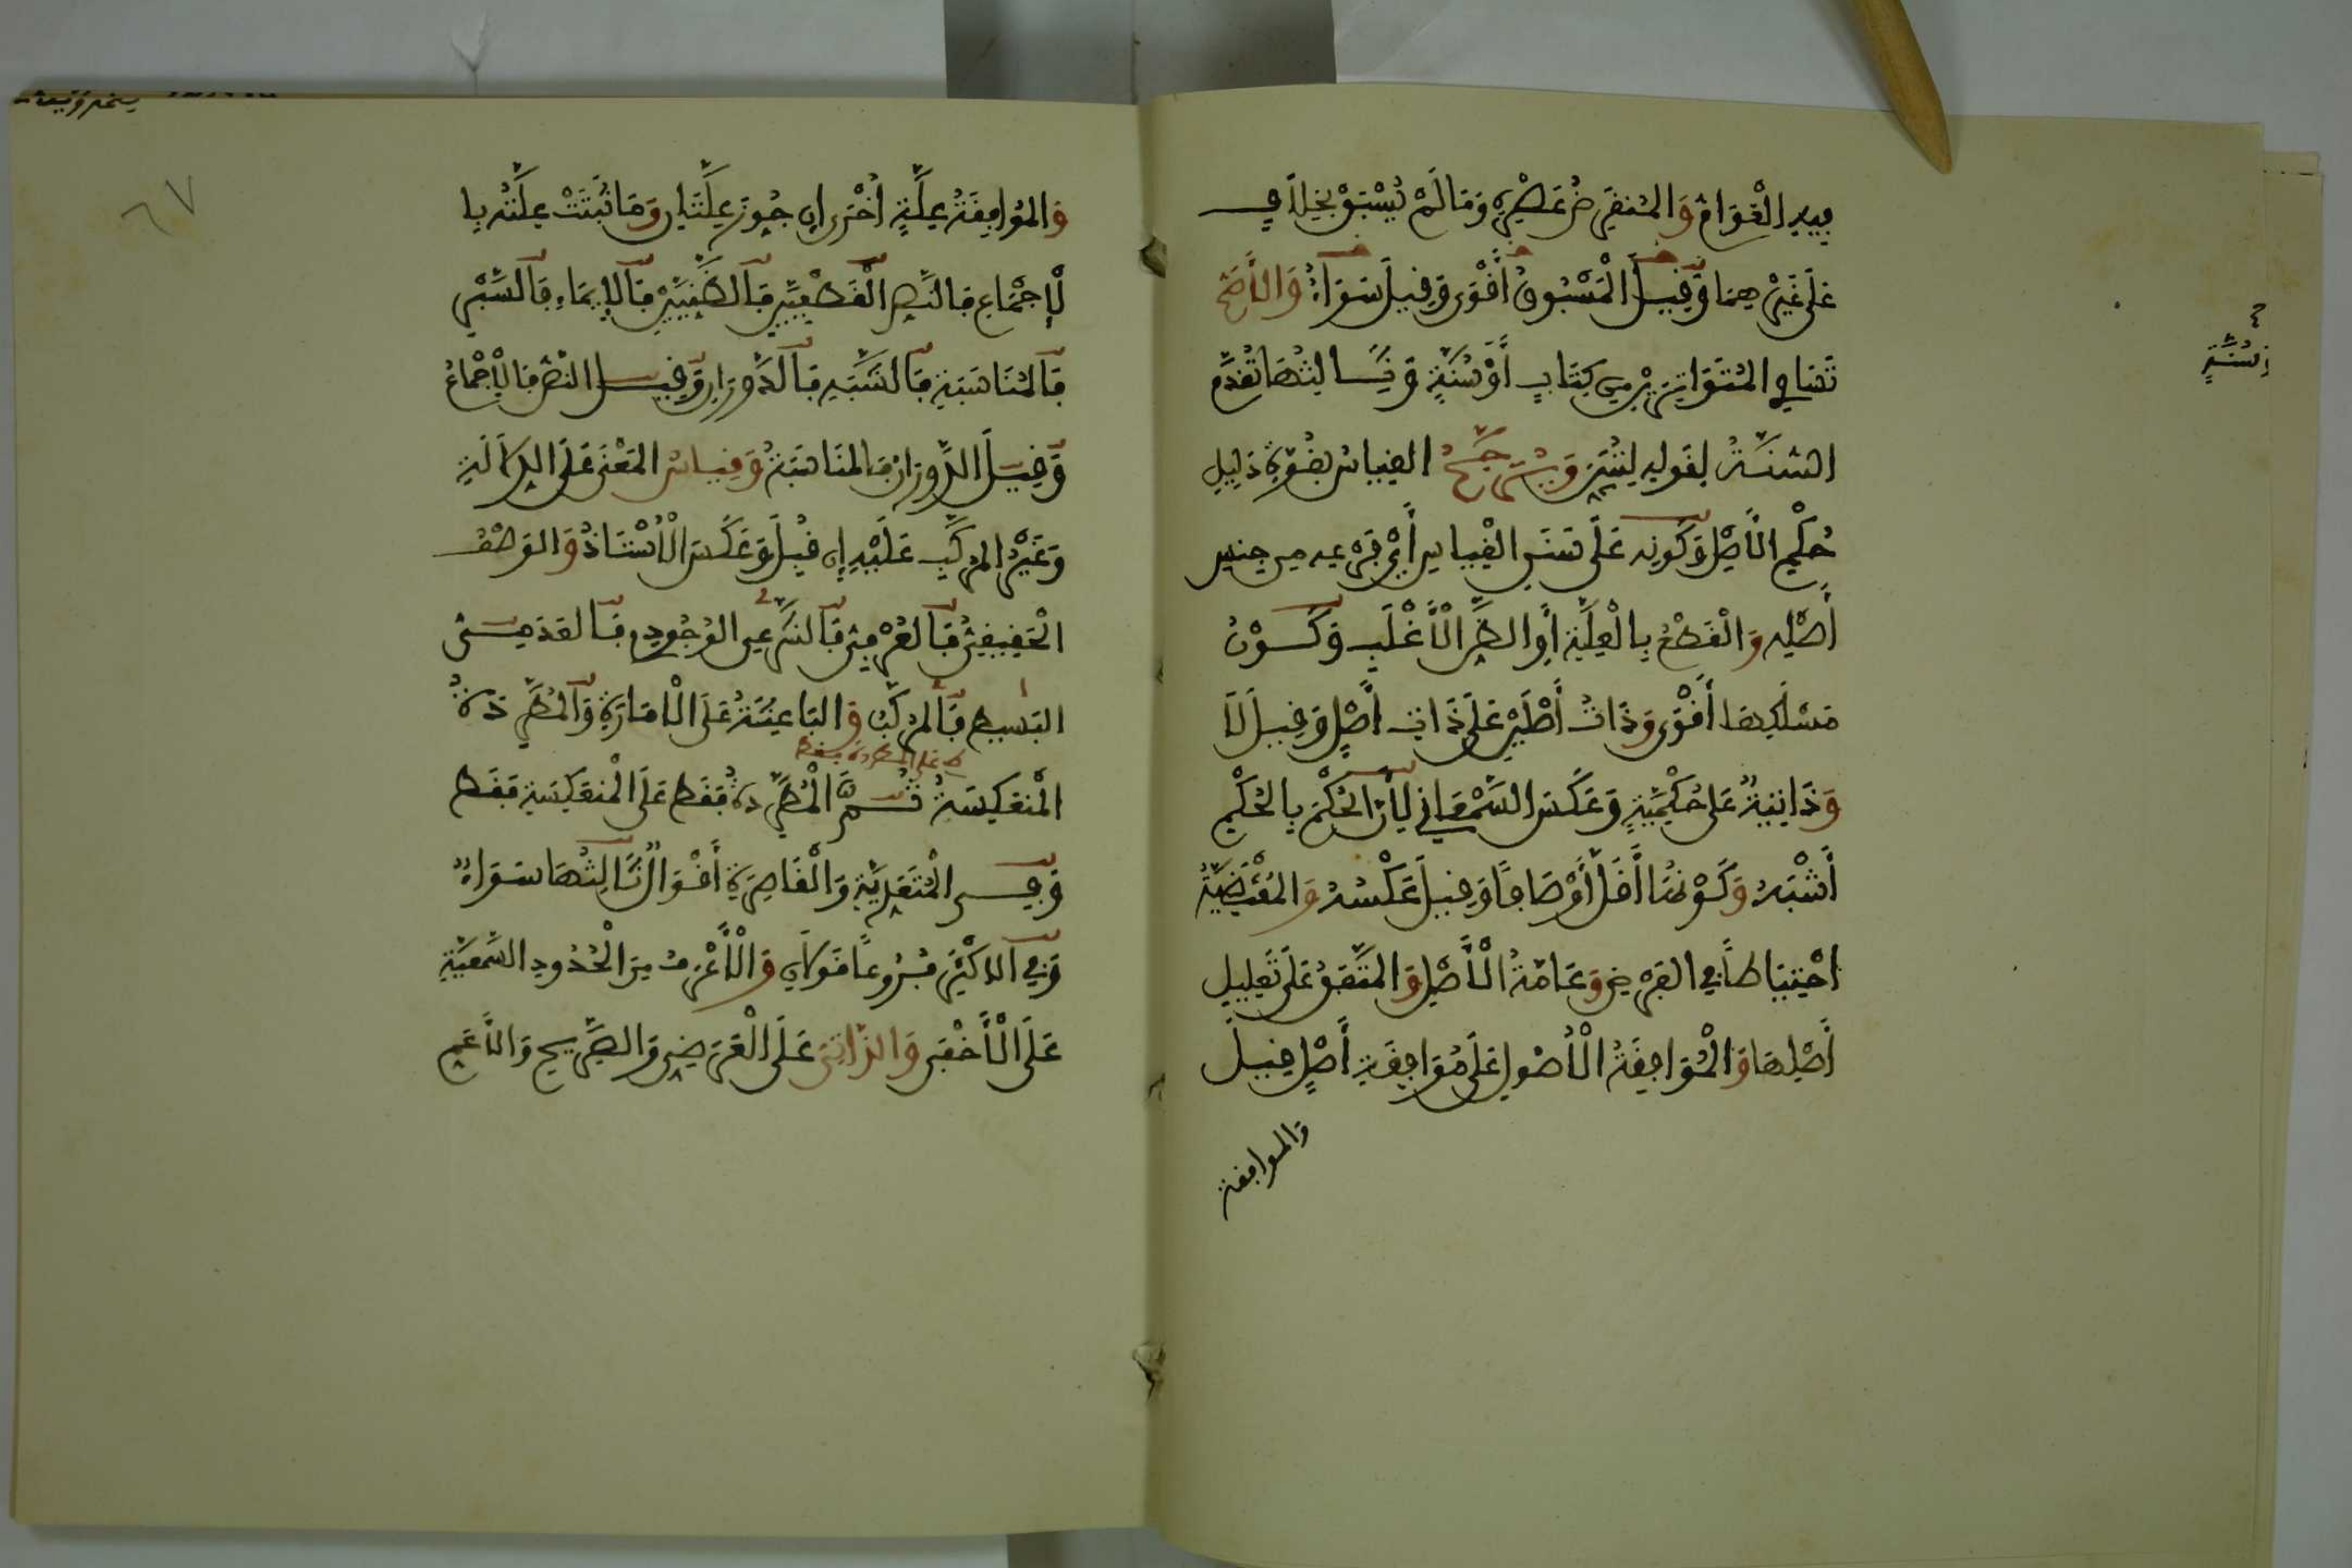 فِيهِ الْعَوَامَّ وَالْمُنْقَرِضُ عَصْرُهُ وَمَا لَمْ يُسْبَقْ بِخِلَافٍ
عَلَى غَيْرِهِمَا وَقِيلَ الْمَسْبُوقُ أَقْوَى وَقِيلَ سَوَاءٌ وَالْأَصَحُّ
تَسَاوِي الْمُتَوَاتِرَيْنِ مِنْ كِتَابٍ أَوْ سُنَّةٍ وَثَالِثُهَا تُقَدَّمُ
السُّنَّةُ لِقَوْلِهِ لِتُبَيِّنَ وَيُرَجَّحُ الْقِيَاسُ بِقُوَّةِ دَلِيلِ
حُكْمِ الْأَصْلِ وَكَوْنِهِ عَلَى سَنَنِ الْقِيَاسِ أَيْ فَرْعِهِ مِنْ جِنْسِ
أَصْلِهِ وَالْقَطْعِ بِالْعِلَّةِ أَوِ الظَّنِّ الْأَغْلَبِ وَكَوْنِ
مَسْلَكِهَا أَقْوَى وَذَاتُ أَصْلَيْنِ عَلَى ذَاتِ أَصْلٍ وَقِيلَ لَا
وَذَاتِيَّةٌ عَلَى حُكْمِيَّةٍ وَعَكَسَ السَّمْعَانِيُّ لِأَنَّ الْحُكْمَ بِالْحُكْمِ
أَشْبَهُ وَكَوْنُهَا أَقَلَّ أَوْصَافًا وَقِيلَ عَكْسُهُ وَالْمُقْتَضِيَةُ
احْتِيَاطًا فِي الْفَرْضِ وَعَامَّةُ الْأَصْلِ وَالْمُتَّفَقُ عَلَى تَعْلِيلِ
أَصْلِهَا وَالْمُوَافِقَةُ الْأُصُولَ عَلَى مُوَافِقَةِ أَصْلٍ قِيلَ
والموافقة
سُنَّةٍ
وَالْمُوَافِقَةُ عِلَّةٍ أُخْرَى إِنْ جُوِّزَ عِلَّتَانِ وَمَا ثَبَتَتْ عِلَّتُهُ بِا
لْإِجْمَاعِ فَالنَّصِّ الْقَطْعِيَّيْنِ فَالظَّنِّيَّيْنِ فَالْإِيمَاءِ فَالسَّبْرِ
فَالْمُنَاسَبَةِ فَالشَّبَهِ فَالدَّوَرَانِ وَقِيلَ النَّصُّ فَالْإِجْمَاعُ
وَقِيلَ الدَّوَرَانُ فَالْمُنَاسَبَةُ وَقِيَاسُ الْمَعْنَى عَلَى الدَّلَالَةِ
وَغَيْرُ الْمُرَكَّبِ عَلَيْهِ إِنْ قُبِلَ وَعَكَسَ الْأُسْتَاذُ وَالْوَصْفُ
الْحَقِيقِيُّ فَالْعُرْفِيُّ فَالشَّرْعِيُّ الْوُجُودِيُّ فَالْعَدَمِيُّ
الْبَسِيطُ فَالْمُرَكَّبُ وَالْبَاعِثَةُ عَلَى الْأَمَارَةِ وَالْمُطَّرِدَةُ
على المطردة فقط
الْمُنْعَكِسَةُ ثُمَّ الْمُطَّرِدَةُ فَقَطْ عَلَى الْمُنْعَكِسَةِ فَقَطْ
وَفِي الْمُتَعَدِّيَةِ وَالْقَاصِرَةِ أَقْوَالٌ ثَالِثُهَا سَوَاءٌ
وَفِي الْأَكْثَرِ فُرُوعًا قَوْلَانِ وَالْأَعْرَفُ مِنَ الْحُدُودِ السَّمْعِيَّةِ
عَلَى الْأَخْفَى وَالذَّاتِيُّ عَلَى الْعَرَضِيِّ وَالصَّرِيحُ وَالْأَعَمُّ
٦٧